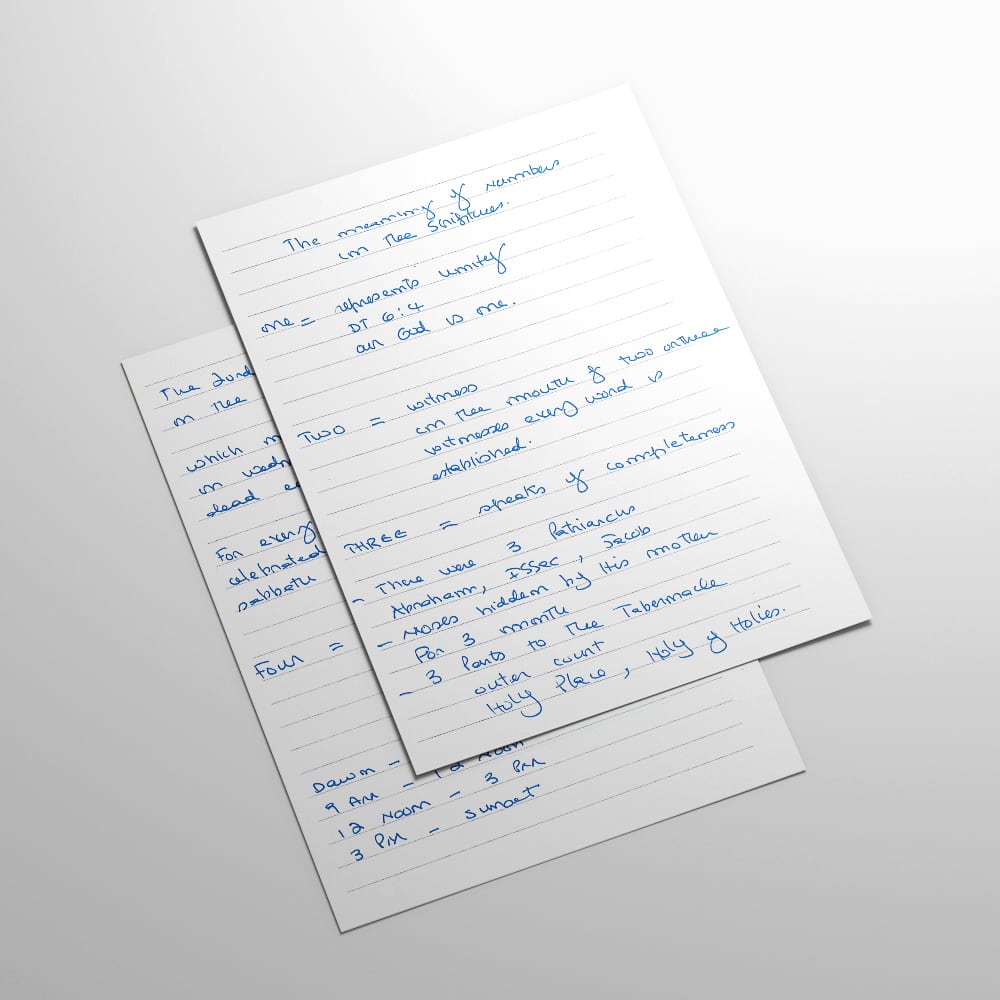 The meaning of Numbers
in the Scriptures.
one = represents unity
DT 6:4
our God is one.
TWO = witness
in the mouth of two or three
witnesses every word is
established.
THREE = speaks of completeness
- There were 3 Patriarcus
Abraham, ISSec, Jacob
- Moses hidden by His mother
For 3 month
- 3 Parts to the Tabernacle
outer court
Holy Place, Holy of Holies.
The
in the
which
in
dead
For every
celebrated
sabbath
Four =
Dawn -
9 AM - 12 Noon
12 Noon - 3 PM
3 PM - Sunset